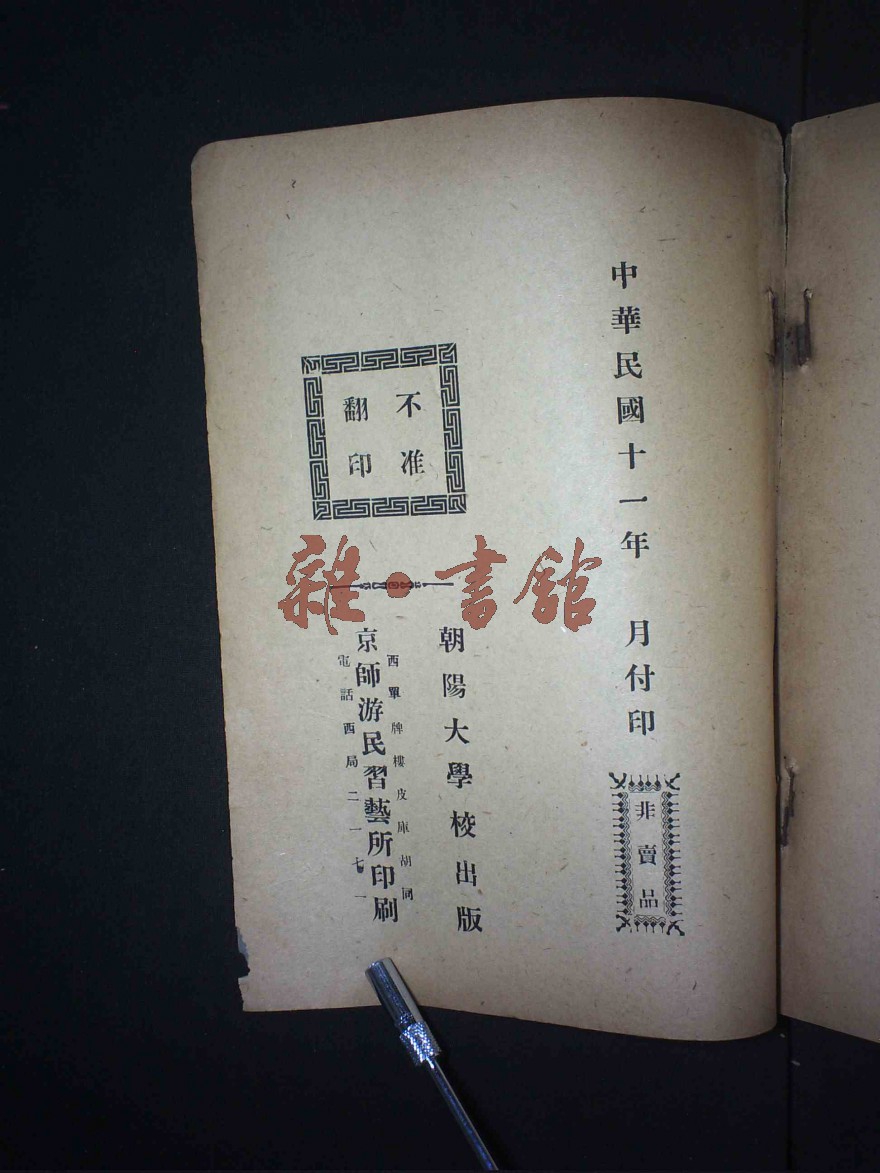 中華民國十一年　月付印
非賣品
不准
翻印
朝陽大學校出版
西單牌樓皮庫胡同
京師游民習藝所印刷
電話西局二一七一
雜·書館